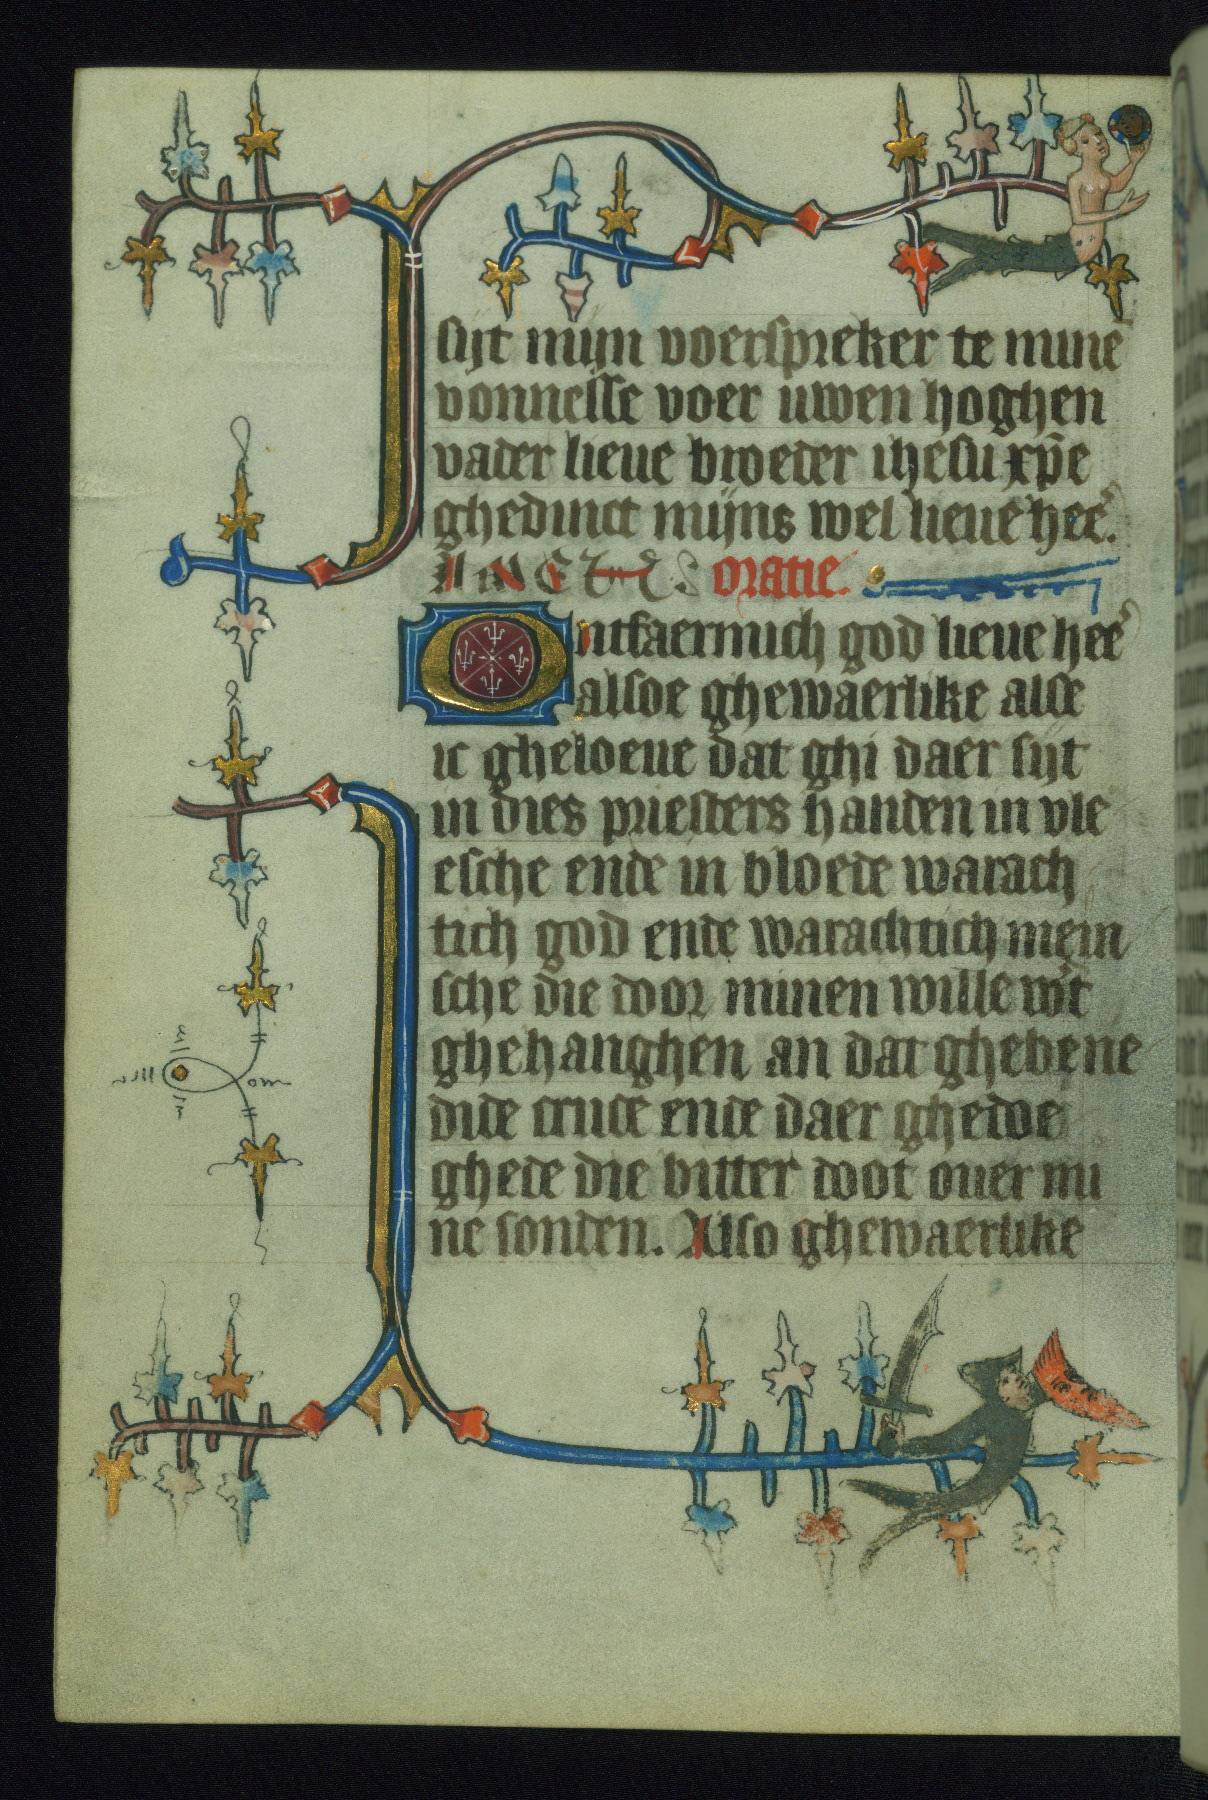 sijt mijn voerspreker te mine
vonnesse voer uwen hoghen
vader lieue broeder ihesu xp̄e
ghedinct mijns wel lieue heē.
AMEN oratie.
Ontfaermich god lieue heē
alsoe ghewaerlike alse
ic gheloeue dat ghi daer sijt
in dies priesters handen in vle
esche ende in bloede warach
tich god ende warachtich mein
sche die door minen wille wͬt
ghehanghen an dat ghebene
dide cruce ende daer ghedoe
ghede die bitter doot ouer mi
ne sonden. Also ghewaerlike